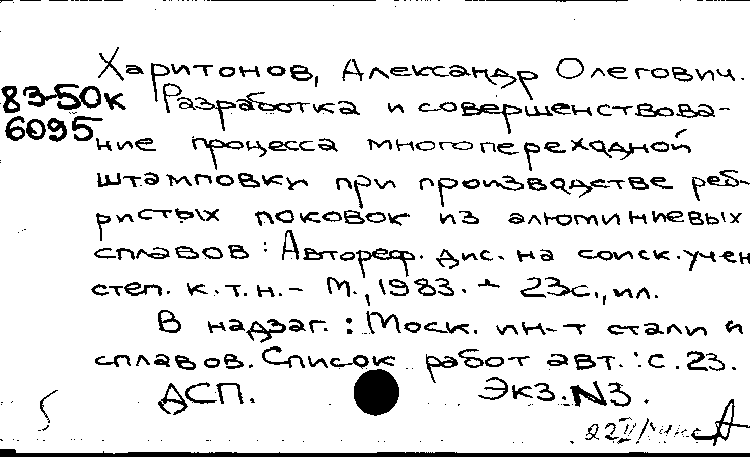 Харитонов, Александр Олегович.
83-50к
6095
Разработка и совершенствова-
ние процесса многопереходной
штамповки при производстве реб-
ристых поковок из алюминиевых
сплавов : Автореф. дис. на соиск. учен
степ. к.т.н. - М., 1983. - 23с., ил.
В надзаг. : Моск. ин-т стали и
сплавов. Список работ авт. : с. 23.
ДСП. Экз. N3.